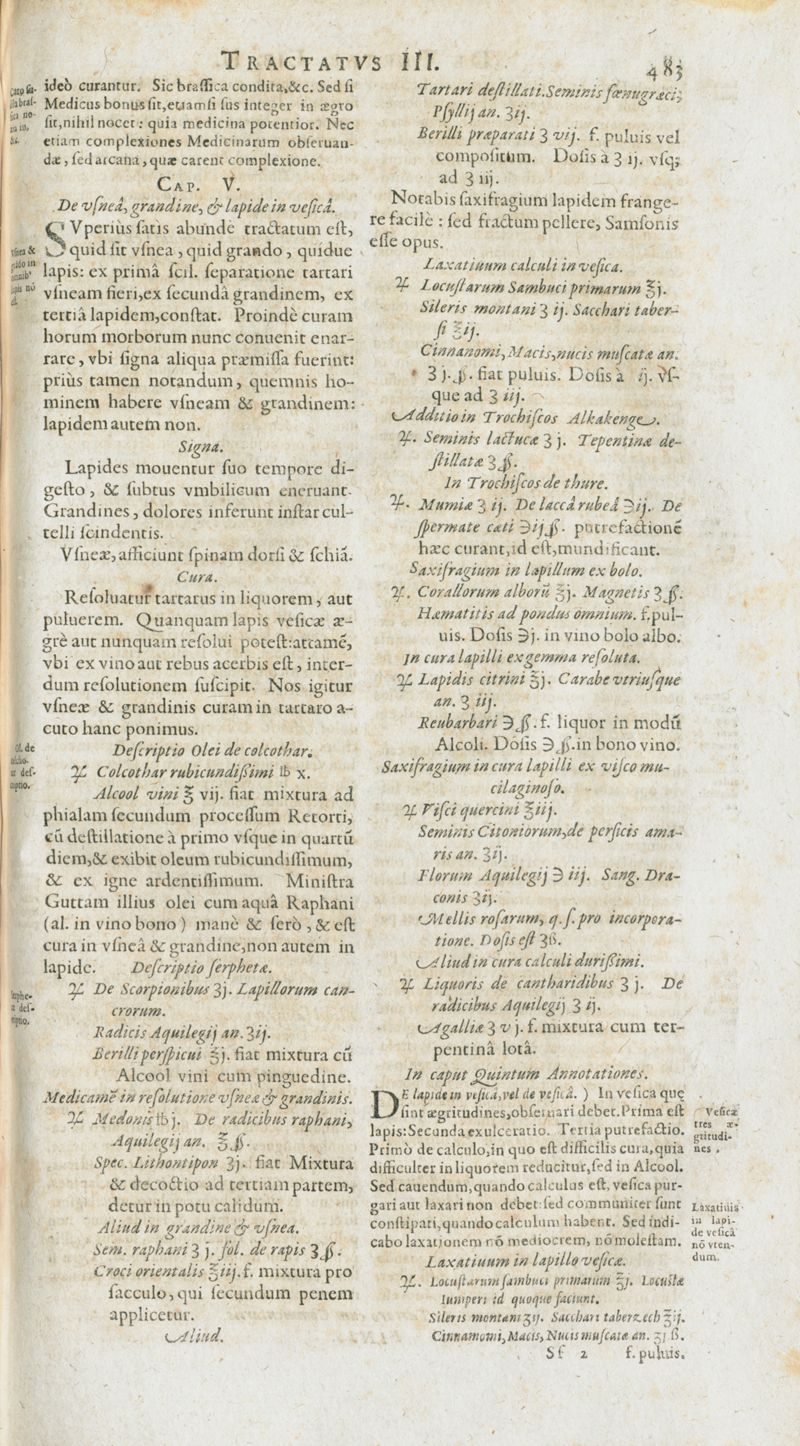 TRACTATVS III.
483
ideò curantur. Sic braſſica condita,&c. Sed ſi
Medicus bonus ſit,etiamſi ſus integer in ægro
ſit,nihil nocet : quia medicina potentior. Nec
etiam complexiones Medicinarum obſeruan-
dæ, ſed arcana, quæ carent complexione.
CAP. V.
De vſneâ, grandine, & lapide in veſicâ.
SVperiùs ſatis abundè tractatum eſt,
quid ſit vſnea, quid grando, quidue
lapis: ex primâ ſcil. ſeparatione tartari
vſneam fieri,ex ſecundâ grandinem, ex
tertiâ lapidem,conſtat. Proindè curam
horum morborum nunc conuenit enar-
rare, vbi ſigna aliqua præmiſſa fuerint:
priùs tamen notandum, quemnis ho-
minem habere vſneam & grandinem:
lapidem autem non.
Signa.
Lapides mouentur ſuo tempore di-
geſto, & ſubtus vmbilicum eneruant.
Grandines, dolores inferunt inſtar cul-
telli ſcindentis.
Vſneæ, afficiunt ſpinam dorſi & ſchiâ.
Cura.
Reſoluatur tartarus in liquorem, aut
puluerem. Quanquam lapis veſicæ æ-
grè aut nunquam reſolui poteſt:attamẽ,
vbi ex vino aut rebus acerbis eſt, inter-
dum reſolutionem ſuſcipit. Nos igitur
vſneæ & grandinis curam in tartaro a-
cuto hanc ponimus.
Deſcriptio Olei de colcothar.
♃ Colcothar rubicundiſſimi ℔ x.
Alcool vini ℥ vij. fiat mixtura ad
phialam ſecundum proceſſum Retorti,
cũ deſtillatione à primo vſque in quartũ
diem,& exibit oleum rubicundiſſimum,
& ex igne ardentiſſimum. Miniſtra
Guttam illius olei cum aquâ Raphani
(al. in vino bono) manè & ſerò, & eſt
cura in vſneâ & grandine,non autem in
lapide. Deſcriptio ſerphetæ.
♃ De Scorpionibus ʒj. Lapillorum can-
crorum.
Radicis Aquilegij an. ʒij.
Berilli perſpicui ℥j. fiat mixtura cũ
Alcool vini cum pinguedine.
Medicamẽ in reſolutione vſneæ & grandinis.
♃ Medonis ℔ j. De radicibus raphani,
Aquilegij an. ℥ ß.
Spec. Lithontipon ʒj. fiat Mixtura
& decoctio ad tertiam partem,
detur in potu calidum.
Aliud in grandine & vſnea.
Sem. raphani ʒ j. fol. de rapis ʒ ß.
Croci orientalis ℥iij. f. mixtura pro
ſacculo, qui ſecundum penem
applicetur.
Aliud.
Tartari deſtillati. Seminis fœnugræci,
Pſyllij an. ʒij.
Berilli præparati ʒ vij. f. puluis vel
compoſitum. Doſis à ʒ ij. vſq;
ad ʒ iij.
Notabis ſaxifragium lapidem frange-
re facilè : ſed fractum pellere, Samſonis
eſſe opus.
Laxatiuum calculi in veſica.
♃ Locuſtarum Sambuci primarum ℥j.
Sileris montani ʒ ij. Sacchari taber-
ſi ℥ij.
Cinnanomi, Macis, nucis muſcatæ an.
ʒ j. ß. fiat puluis. Doſis à ij. vſ-
que ad ʒ iij.
Additio in Trochiſcos Alkakenge.
♃. Seminis lactucæ ʒ j. Tepentinæ de-
ſtillatæ ʒ ß.
In Trochiſcos de thure.
♃. Mumiæ ʒ ij. De laccâ rubeâ ℈ij. De
ſpermate cæti ℈ij ß. putrefactionẽ
hæc curant,id eſt,mundificant.
Saxifragium in lapillum ex bolo.
♃. Corallorum alborũ ℥j. Magnetis ʒ ß.
Hæmatitis ad pondus omnium. f. pul-
uis. Doſis ℈j. in vino bolo albo.
In cura lapilli ex gemma reſoluta.
♃ Lapidis citrini ℥j. Carabe vtriuſque
an. ʒ iij.
Reubarbari ℈ ß. f. liquor in modũ
Alcoli. Doſis ℈ ß. in bono vino.
Saxifragium in cura lapilli ex viſco mu-
cilaginoſo.
♃ Viſci quercini ℥iij.
Seminis Citoniorum, de perſicis ama-
ris an. ʒij.
Florum Aquilegij ℈ iij. Sang. Dra-
conis ʒij.
Mellis roſarum, q. ſ. pro incorpora-
tione. Doſis eſt ʒß.
Aliud in cura calculi duriſſimi.
♃ Liquoris de cantharidibus ʒ j. De
radicibus Aquilegij ʒ ij.
Agalliæ ʒ v j. f. mixtura cum ter-
pentinâ lotâ.
In caput Quintum Annotationes.
DE lapide in veſicâ, vel de veſicâ. ) In veſica quę
ſint ægritudines,obſeruari debet. Prima eſt
lapis: Secunda exulceratio. Tertia putrefactio.
Primò de calculo,in quo eſt difficilis cura,quia
difficulter in liquorem reducitur,ſed in Alcool.
Sed cauendum,quando calculus eſt, veſica pur-
gari aut laxari non debet: ſed communiter ſunt
conſtipati,quando calculum habent. Sed indi-
cabo laxationem nõ mediocrem, nõ moleſtam.
Laxatiuum in lapillo veſicæ.
♃. Locuſtarum ſambuci primarum ℥j. Locuſtæ
Iuniperi id quoque faciunt.
Sileris montani ʒij. Sacchari taberzeth ℥ij.
Cinnamomi, Macis, Nucis muſcatæ an. ʒj ß.
Sſ 2 f. puluis.
Veſicæ
tres æ-
gritudi-
nes.
Laxatiuis
in lapi-
de veſicâ
nõ vten-
dum.